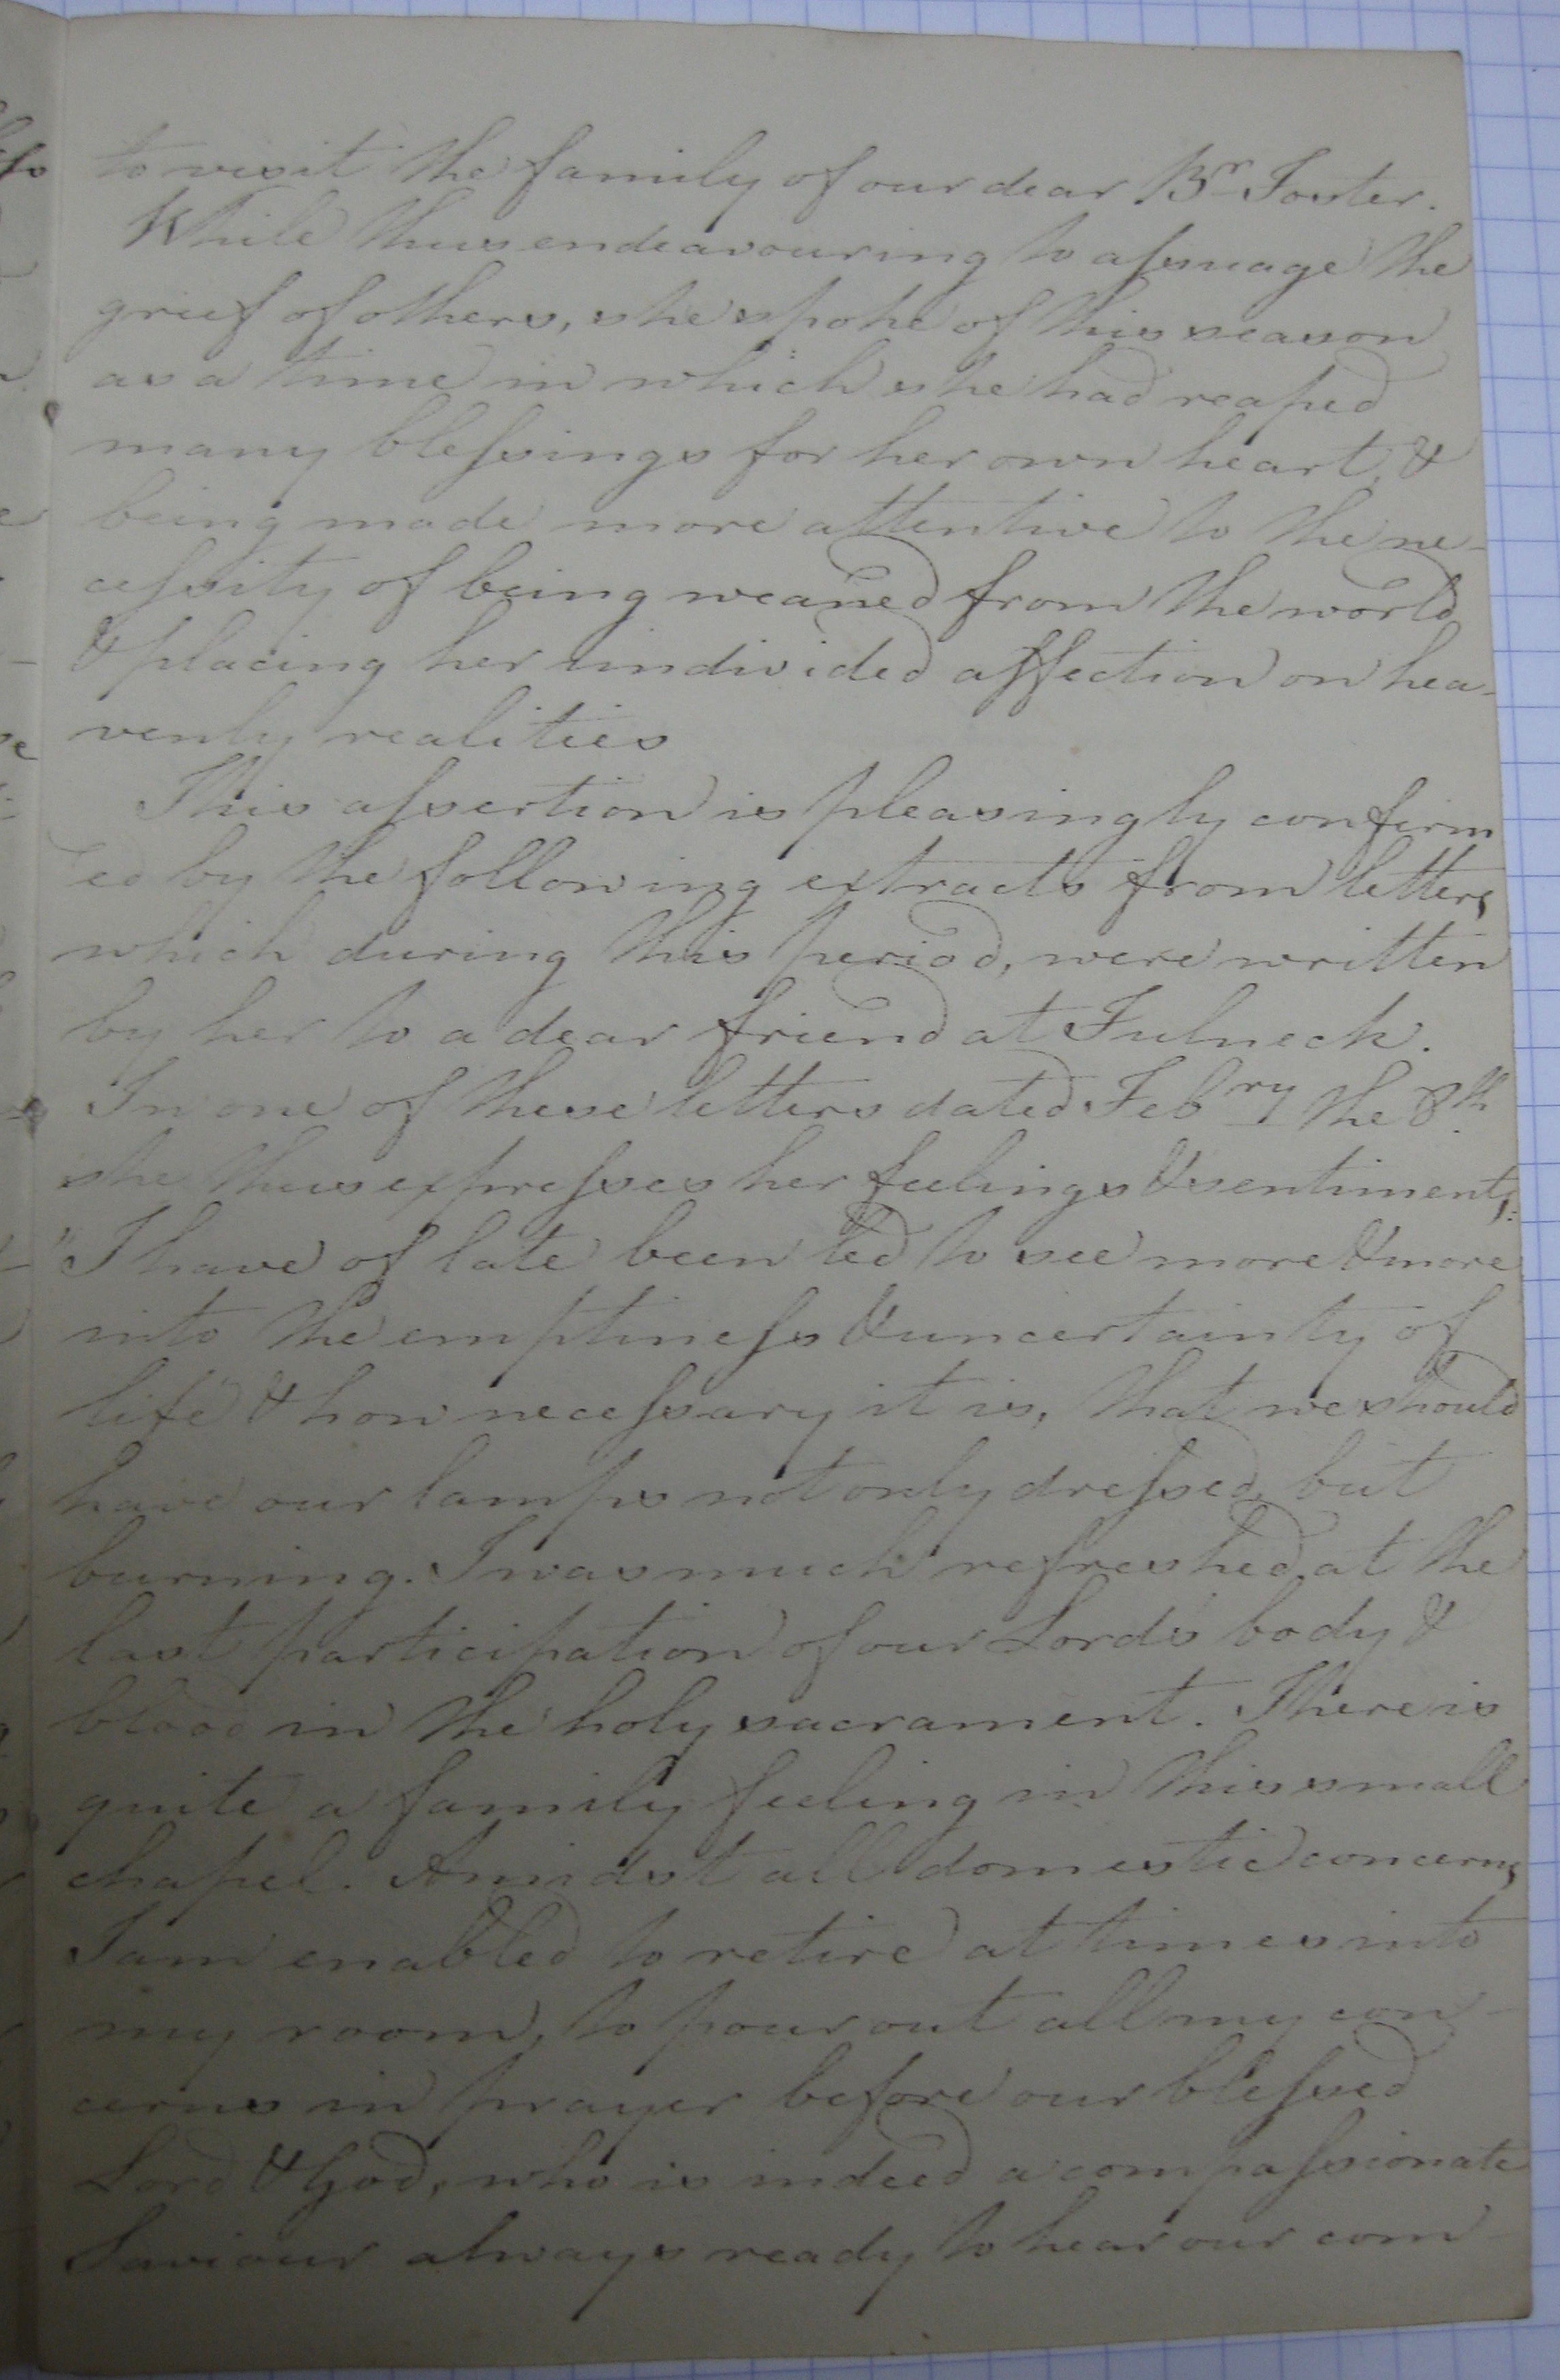 to visit the family of our dear Br Foster.
While thus endeavouring to assuage the
grief of others, she spoke of this season
as a time in which she had reaped
many blessings for her own heart, &
being made more attentive to the ne-
cessity of being weaned from the world
& placing her undivided affection on hea-
venly realities
This assertion is pleasingly confirm
ed by the following extracts from letters,
which during this period, were written
by her to a dear friend at Fulneck.
In one of these letters dated Febry the 8th
she thus expresses her feelings & sentiments:
"I have of late been led to see more & more
into the emptiness & uncertainty of
life & how necessary it is, that we should
have our lamps not only dressed, but
burning. I was much refreshed at the
last participation of our Lord's body &
blood in the holy sacrament. There is
quite a family feeling in this small
chapel. Amidst all domestic concerns,
I am enabled to retire at times into
my room, to pour out all my con-
cerns in prayer before our blessed
Lord & God, who is indeed a compassionate
Saviour always ready to hear our com-